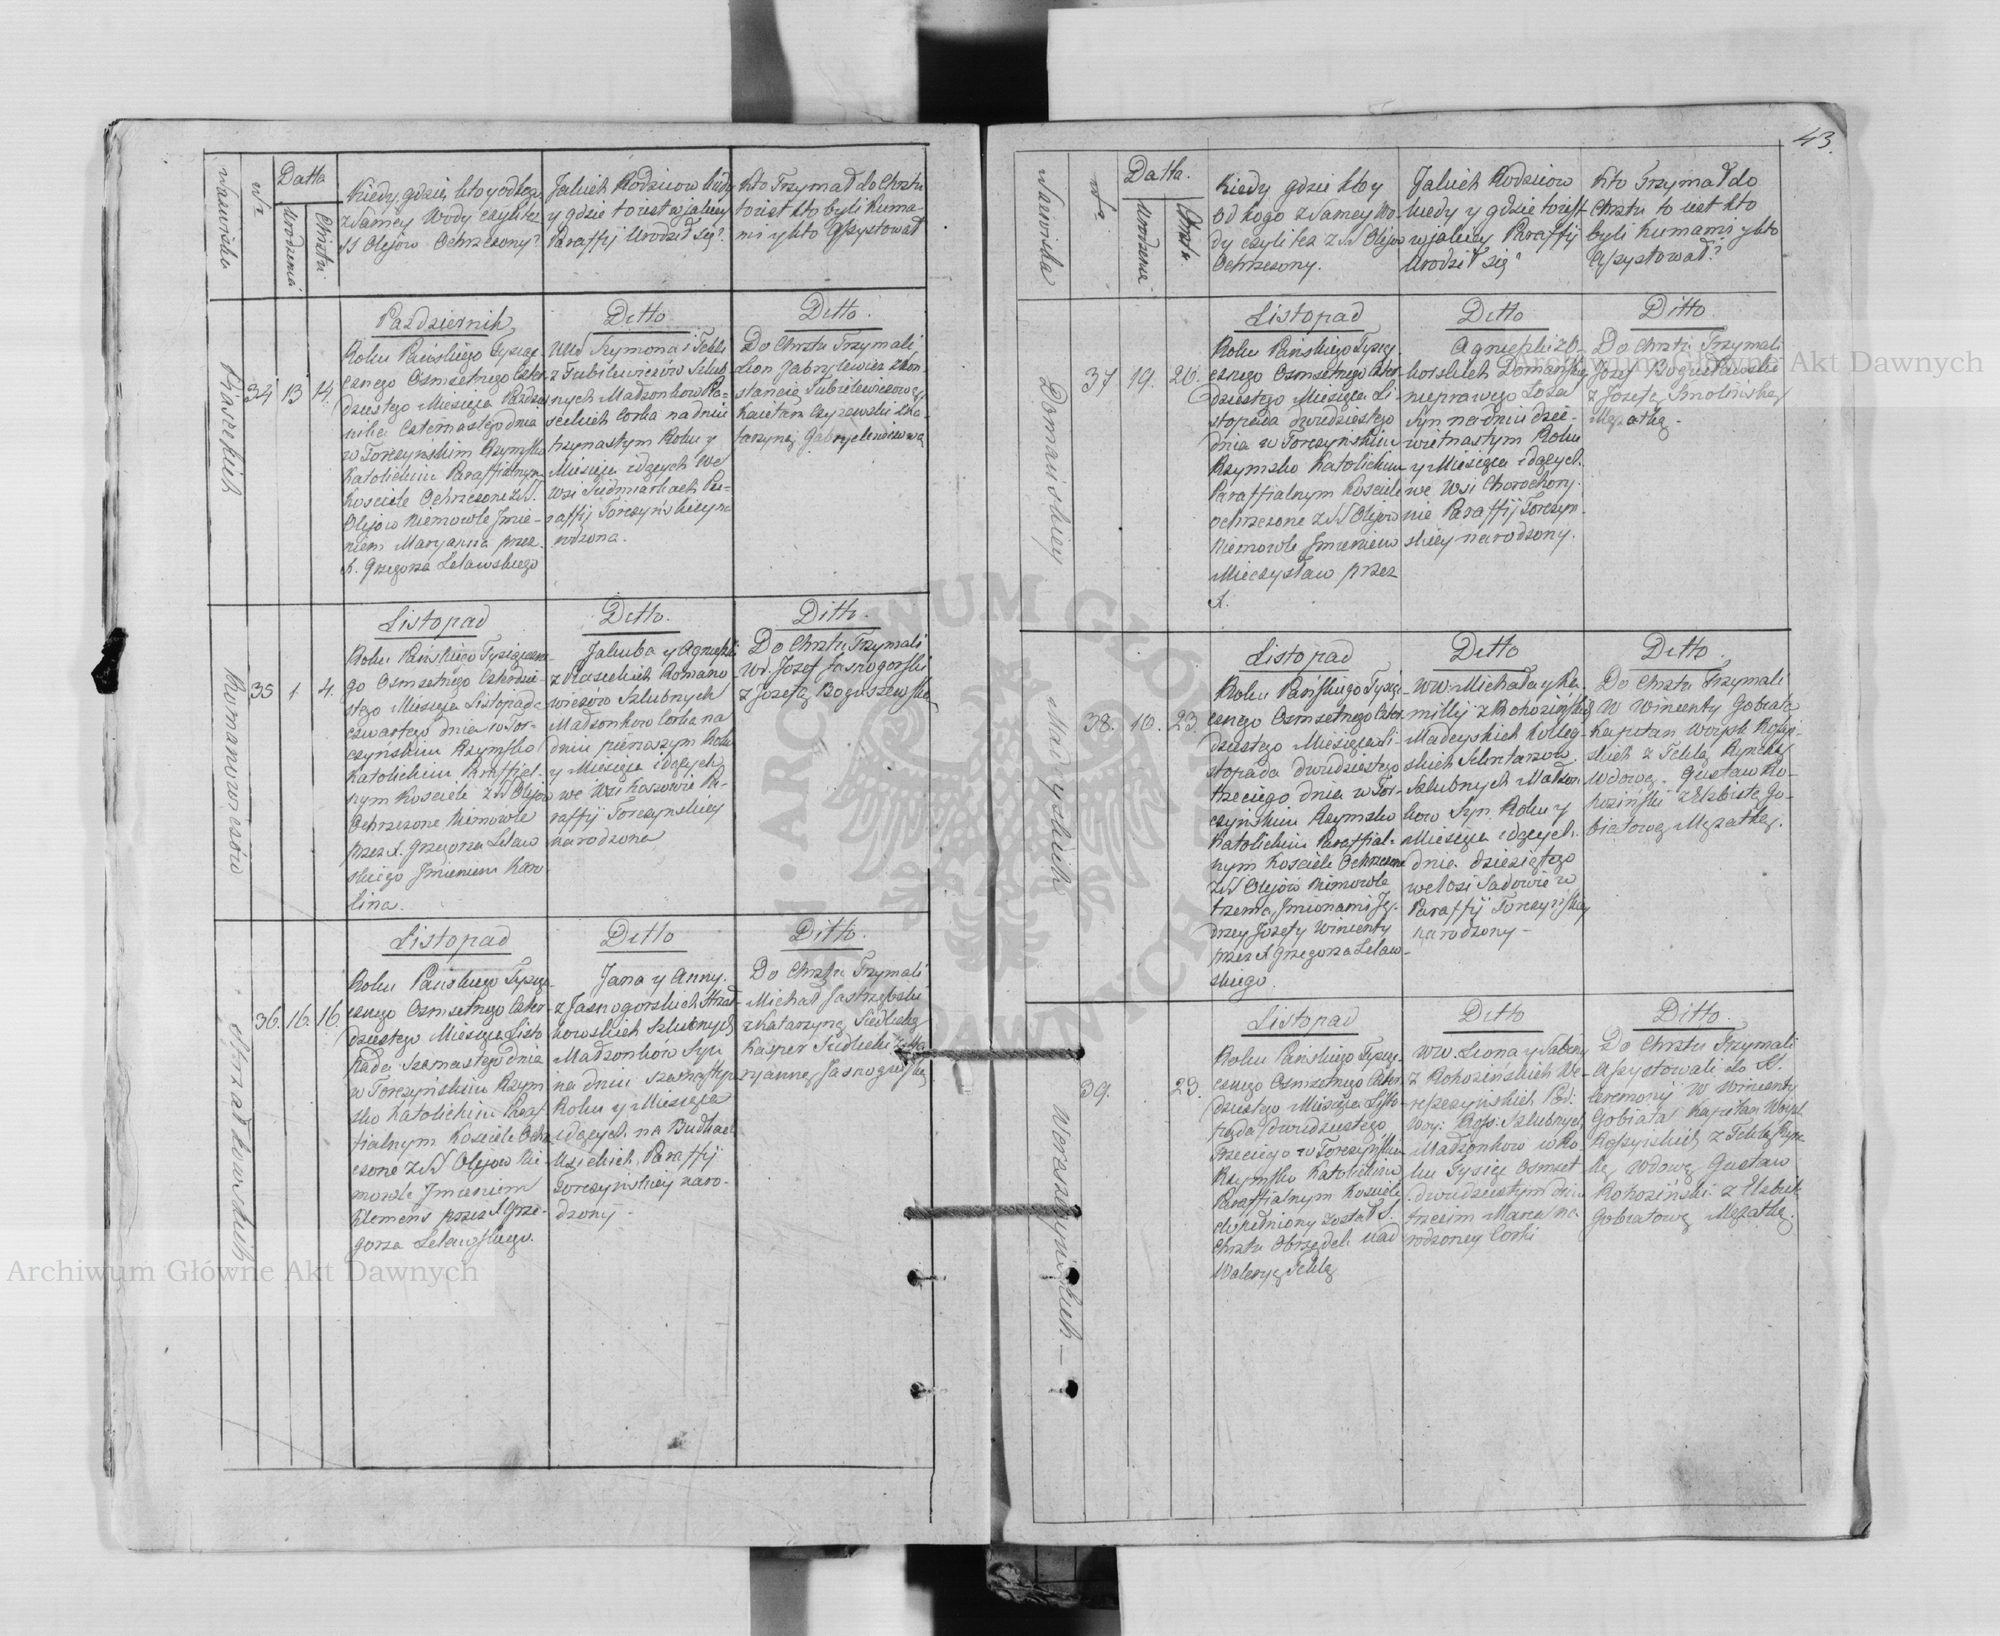 Nazwisko
Nr
Datta
Urodzenia
Chrztu.
Kiedy gdzie kto y od kogo
z Samey Wody czyli też
SS Olejow Ochrzczony?
Jakich Rodzicow kiedy
y gdzie to iest w jakiey
Paraffij Urodził się?
Kto Trzymał do Chrztu
to iest kto byli Kuma-
mi y kto Assystował
Piaseckich
34
13
14.
Październik
Roku Pańskiego Tysiąc
cznego Osmsetnego Czter-
dziestego Miesiąca Paździer
nika Czternastego dnia
w Torczyńskim Rzymsko
Katolickim Paraffialnym
Kościele Ochrzczone z SS.
Olejow Niemowle Imie-
niem Maryanna przez
X. Grzegorza Zelawskiego
Ditto
Szymona i Tekli
z Fubilewiczów Szlub-
nych Madżonkow Pia-
seckich Corka na dniu
trzynastym Roku y
Miesiąca idących we
Wsi Siedmiarkach Pa-
raffij Torczyńskiey na
rodzona.
Ditto.
Do Chrztu Trzymali
Leon Gabrylewicz z Kon-
stancią Fubilewiczową
Kaietan Czyzewski z Ka-
tarzyną Gabrylewiczową
Romanowiczów
35
1
4.
Listopad
Roku Pańskiego Tysiączne
go Osmsetnego Czterdzie-
stego Miesiąca Listopada
czwartego dnia w Tor-
czyńskim Rzymsko
Katolickim Paraffial-
nym Kościele z SS Olejow
Ochrzczone Niemowle
przez X. Grzegorza Zelaw
skiego Imieniem Karo
lina.
Ditto.
Jakuba y Agnieszki
z Piaseckich Romano
wiczów Szlubnych
Madżonkow Corka na
dniu pierwszym Roku
y Miesiąca idących
we Wsi Koszowie Pa-
raffij Torczynskiey
narodzona
Ditto.
Do Chrztu Trzymali
Wd. Jozef Jasnogorski
z Jozefą Boguszewską
Strzałkowskich
36.
16.
16.
Listopad
Roku Pańskiego Tysiąc
cznego Osmsetnego Czter-
dziestego Miesiąca Listo
pada Szesnastego dnia
w Torczyńskim Rzym
sko Katolickim Paraf
fialnym Kościele Ochrz
czone z SS Olejow Nie
mowle Imieniem
Klemens przez X Grze-
gorza Zelawskiego.
Ditto
Jana y Anny.
z Jasnogorskich Strzał-
kowskich Szlubnych
Madżonków Syn
na dniu szesnastym
Roku y Miesiąca
idących na Budkach
Usickich Paraffij
Torczyńskiey naro-
dzony.
Ditto.
Do Chrztu Trzymali
Michał Jastrzębski
z Katarzyną Siedlecką
Kasper Siedlecki z Ma
ryanną Jasnogorską
43.
Nazwiska
Nr
Datta.
Urodzenia
Chrztu.
Kiedy gdzie kto y
od kogo z Samey Wo-
dy czyli też z SS Olejow
Ochrzczony.
Jakich Rodzicow
kiedy y gdzie to iest
w jakiey Paraffij
Urodził się?
Kto Trzymał do
Chrztu to iest kto
byli Kumami y kto
Assystował?
Domańskiey
37
19.
20.
Listopad
Roku Pańskiego Tysią-
cznego Osmsetnego Czter-
dziestego Miesiąca Li-
stopada dwudziestego
dnia w Torczyńskim
Rzymsko Katolickim
Paraffialnym Kosciele
ochrzczone z SS Olejow
Niemowle Imieniem
Mieczysław przez
X.
Ditto
Agnieszki z Zb.
horskich Domańskiey
nieprawego Łoża
Syn na dniu dzie-
wietnastym Roku
y Miesiąca idących.
we Wsi Chorochory.
nie Paraffij Torczyn-
skiey narodzony.
Ditto
Do Chrztu Trzymali
Jozef Bogusławski
z Jozefą Smolińską
Mężatką.
Madeyskich
38.
10.
23.
Listopad
Roku Pańskiego Tysią-
cznego Osmsetnego Czter-
dziestego Miesiąca Li-
stopada dwudziestego
trzeciego dnia w Tor-
czyńskim Rzymsko
Katolickim Paraffial-
nym Kosciele Ochrzczone
z SS Olejów Niemowle
trzema Imionami Ję-
drzey Jozefy Wincenty
przez X Grzegorza Zelaw-
skiego.
Ditto
WW. Michała y Ka-
milly z Rohozińskich
Madeyskich Kolleg-
skich Sekretarzow
Szlubnych Madżon
kow Syn Roku y
Miesiąca idących.
dnia dziesiątego
we Wsi Sadowie w
Paraffij Torczyńskiey
narodzony -
Ditto.
Do Chrztu Trzymali
W Wincenty Gobiata
Kapitan Woysk Rossyi-
skich z Teklą Rynską
Wdową. Gustaw Ro-
hoziński z Elzbietą Go-
biatową Mężatką.
Wereszczyńskich -
39.
23.
Listopad
Roku Pańskiego Tysią-
cznego Osmsetnego Czter-
dziestego Miesiąca Listo-
pada dwudziestego
Trzeciego w Torczyńskim
Rzymsko Katolickim
Paraffialnym Kosciele
dopełniony został S.
Chrztu Obrządek nad
Waleryą Teklą
Ditto
WW. Leona y Sabiny
z Rohozińskich We-
reszczyńskich Pod:
Woy: Ross: Szlubnych
Madżonkow w Ro-
ku Tysiąc Osmset
dwudziestym dnia
trzecim Marca na
rodzoney Corki
Ditto.
Do Chrztu Trzymali
Assystowali do St.
Ceremonij W Wincenty
Gobiata Kapitan Woysk
Rossyiskich z Teklą Ryn-
ską Wdową Gustaw
Rohoziński z Elzbietą
Gobiatową Mężatką.
Archiwum Główne Akt Dawnych
Archiwum Główne Akt Dawnych
ARCHIWUM GŁÓWNE AKT DAWNYCH